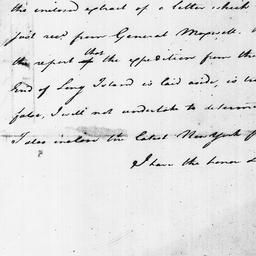 the enclosed extract of a letter which
just recd from General Maxwell.
that
the report of the expedition from the
End of Long Island is laid aside, is
false, I will not undertake to determine
I also inclose the latest New York
I have the honor